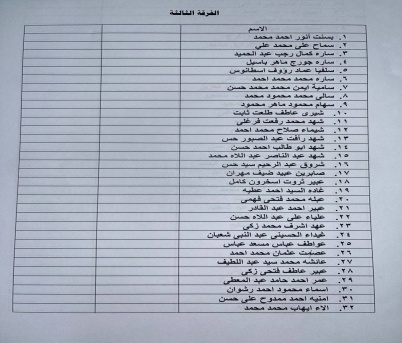 الفرقة الثالثة
الاسم
١. بسنت أنور احمد محمد
٢. سماح على محمد على
٣. ساره كمال رجب عبد الحميد
٤. ساره جورج ماهر باسيل
٥. سلفيا عماد رؤوف اسطانوس
٦. ساره محمد محمد احمد
٧. سامية ايمن محمد محمد حسن
٨. سالى محمد محمود محمد
٩. سهام محمود ماهر محمود
١٠. شيرى عاطف طلعت ثابت
١١. شهد محمد رفعت فرغلى
١٢. شيماء صلاح محمد احمد
١٣. شهد رأفت عبد الصبور حسن
١٤. شهد ابو طالب احمد حسن
١٥. شهد عبد الناصر عبد اللاه محمد
١٦. شروق عبد الرحيم سيد حسن
١٧. صابرين عبيد ضيف مهران
١٨. عبير ثروت اسخرون كامل
١٩. غاده السيد احمد عطيه
٢٠. عبله محمد فتحى فهمى
٢١. عبير احمد عبد القادر
٢٢. علياء على عبد اللاه حسن
٢٣. عهد اشرف محمد زكى
٢٤. غيداء الحسينى عبد النبى شعبان
٢٥. عواطف عباس مسعد عباس
٢٦. عصمت عثمان محمد احمد
٢٧. عائشه محمد سيد عبد اللطيف
٢٨. عبير عاطف فتحى زكى
٢٩. عمر احمد حامد عبد المعطى
٣٠. اسماء محمود احمد رشوان
٣١. امنيه احمد ممدوح على حسن
٣٢. الاء ايهاب محمد محمد